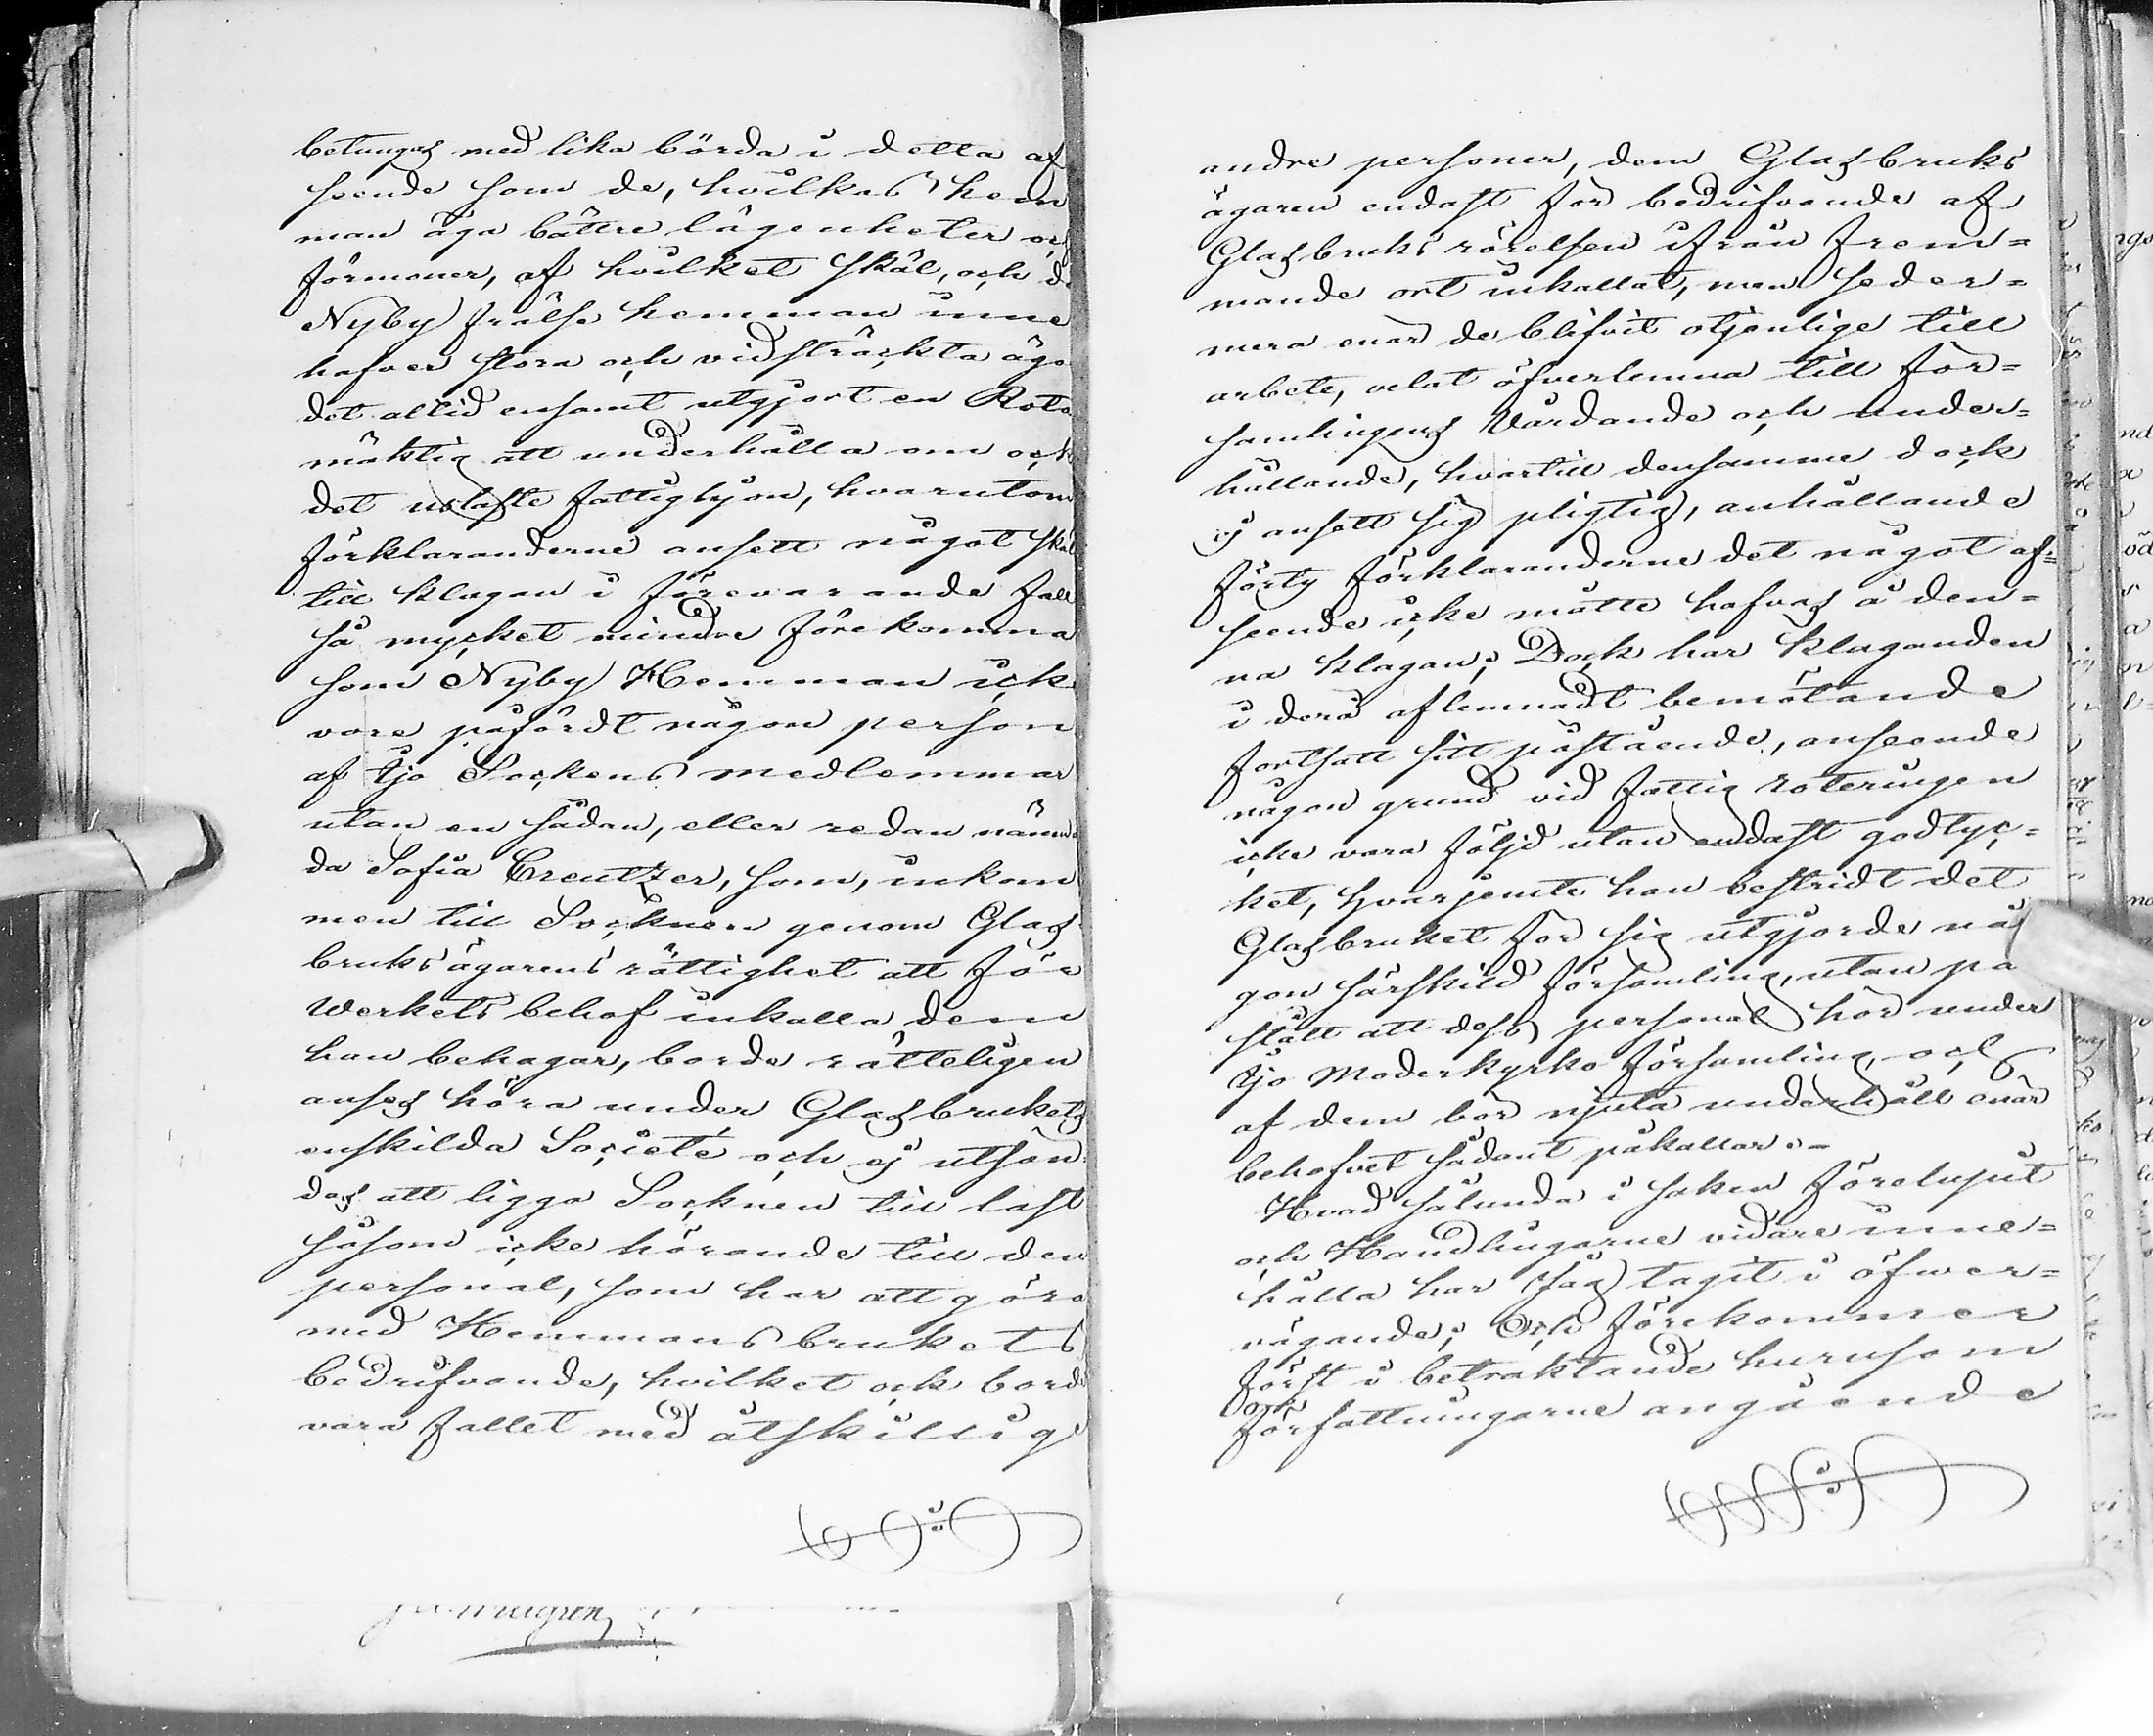 betungas med lika börda i detta af
seende som de, hvilkas hem
man äga bättre lägenheter och
förmoner, af hvilket skäl, och d
Nyby frälse hemman inne
hafver stora och vidsträckta ägo
det altid ensamt utgjort en Rota
mäktig att underhålla om ock
det uslaste fattighjon, hvarutom
förklaranderne ansett något skäl
till klagan i förevarande fall
så mycket mindre förekomma
som Nyby Hemman ick
vore påfördt någon person
af tjo Sockens medlemmar
utan en sådan, eller redan nämn
da Sofia Creutzer, som, inkom
men till Socknen genom Glas
bruksägarens rättighet att för
Werkets behof inkalla dem
han behagar, borde rätteligen
anses höra under Glasbrukets
enskilda Societé och ej utsön
das att ligga Socknen till last
såsom icke hörande till den
personal, som har att göra
med Hemmans brukets
bedrifvande, hvilket ock borde
vara fallet med åtskillige
andre personer, dem Glasbruks
ägaren endast för bedrifvande af
Glasbruks rörelsen ifrån frem=
mande ort inkallat, men seder=
mera enär de blifvit otjenlige till
arbete, velat öfverlemna till för=
samlingens Vårdande och under=
hållande, hvartill densamme dock
ej ansett sig pligtig, anhållande
förty förklaranderne det något af=
seende icke måtte hafvas å den=
na klagan; Dock har klaganden
i dera aflemnadt bemötande
fortsatt sitt påstående, anseende
någon grund vid fattig roteringen
icke vara följd utan endast godtyc=
ket, hvarjemte han bestridt det
Glasbruket för sig utgjorde nå
gon särskild församling, utan på
stått att dess personal hör under
tjo Moderkyrko församling, och
af dem bör njuta underhåll enär
behofvet sådant påkallar.=
Hvad sålunda i saken förelupit
och Handlingarne vidare inne=
hålla har Jag tagit i öfwer=
vägande; Och förekommer
först i betraktande hurusom
författningarne angående